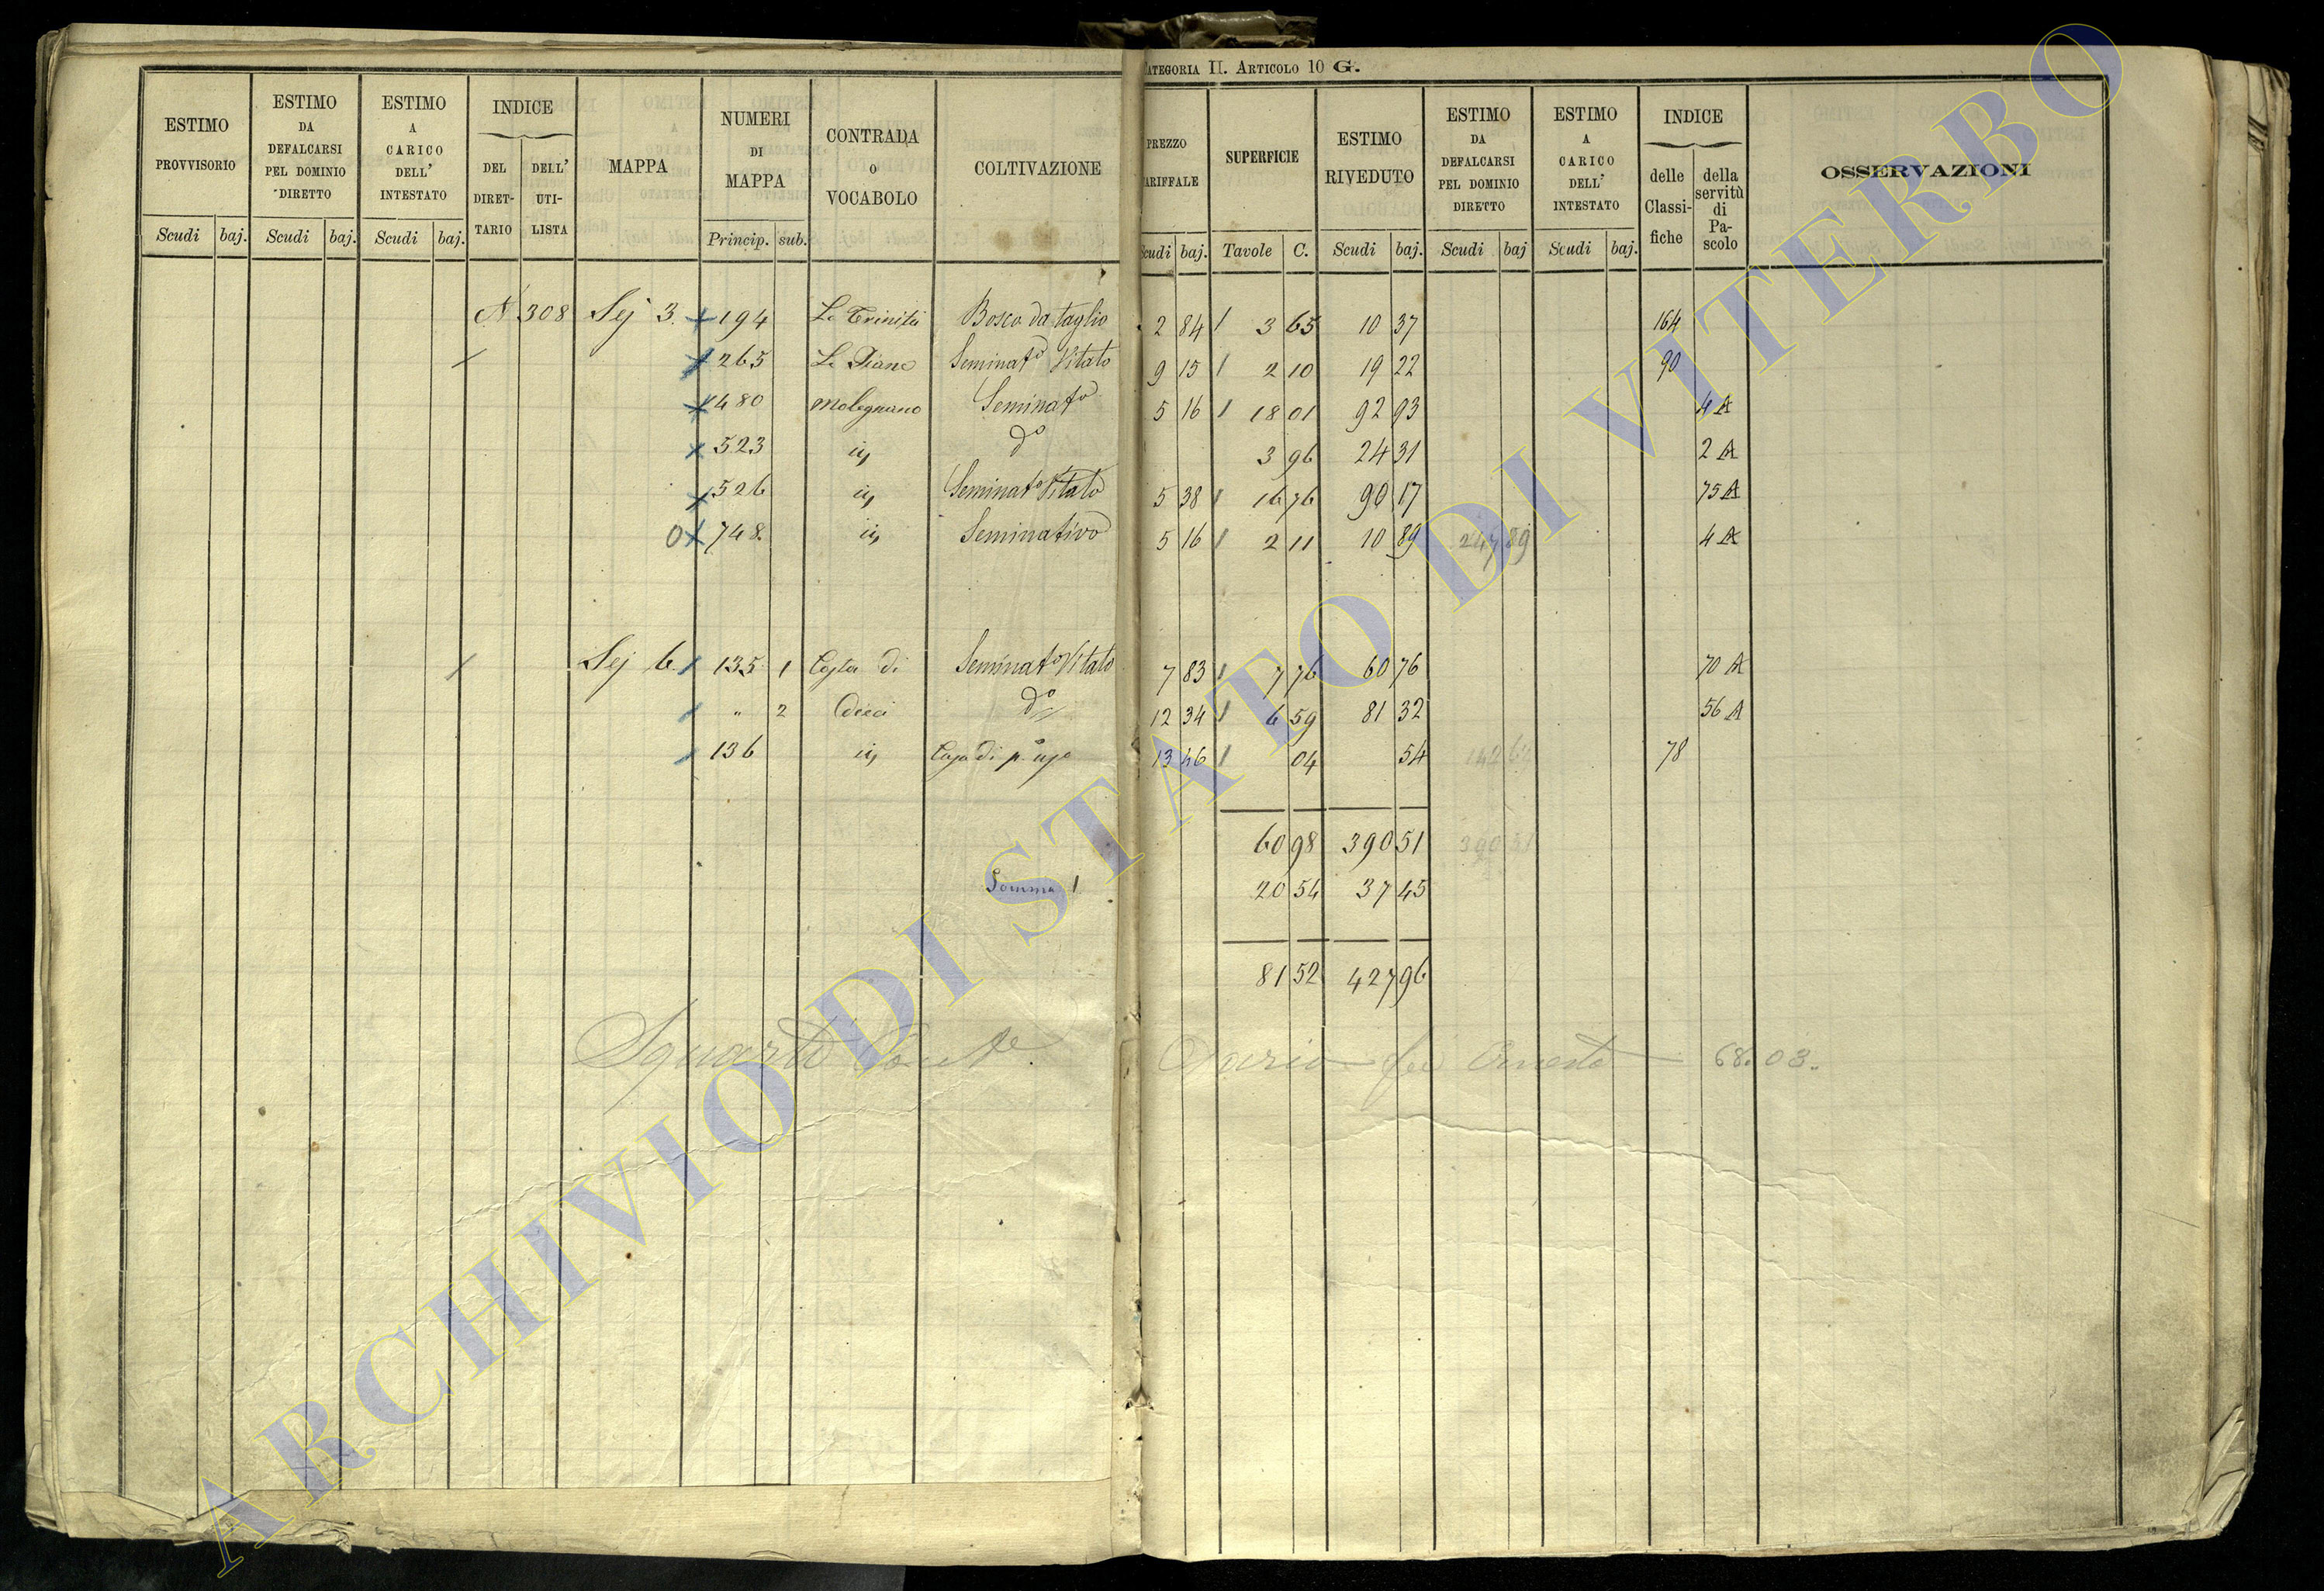 CATEGORIA II. ARTICOLO 10 G.
ESTIMO PROVVISORIO
ESTIMO DA DEFALCARSI PEL DOMINIO DIRETTO
ESTIMO A CARICO DELL' INTESTATO
INDICE
DEL DIRETTARIO
DELL' UTILISTA
MAPPA
NUMERI DI MAPPA
CONTRADA O VOCABOLO
COLTIVAZIONE
PREZZO TARIFFALE
SUPERFICIE
ESTIMO RIVEDUTO
ESTIMO DA DEFALCARSI PEL DOMINIO DIRETTO
ESTIMO A CARICO DELL' INTESTATO
INDICE
delle Classifiche
della servitù di Pascolo
OSSERVAZIONI
Scudi baj. Scudi baj. Scudi baj. Princip. sub. Scudi baj. Tavole C. Scudi baj. Scudi baj Scudi baj.
N 308 Sej 3. 194 La Trinità Bosco da taglio 2 84 3 65 10 37 164
265 Le Piane Seminato Vitato 9 15 2 10 19 22 90
480 Molegnano Seminato 5 16 18 01 92 93 4 A
523 ivi do 3 96 24 31 2 A
526 ivi Seminato Vitato 5 38 16 76 90 17 75 A
0 748. ivi Seminativo 5 16 2 11 10 89 247 89 4 A
Sej 6. 135 1 Costa di Seminato Vitato 7 83 7 76 60 76 70 A
" 2 do 12 34 6 59 81 32 56 A
136 ivi Casa di po uso 13 46 04 54 142 62 78
60 98 390 51 390 51
Somma 1 20 54 37 45
81 52 427 96
Squarti Dario fu Ernesto 68.03.
ARCHIVIO DI STATO DI VITERBO